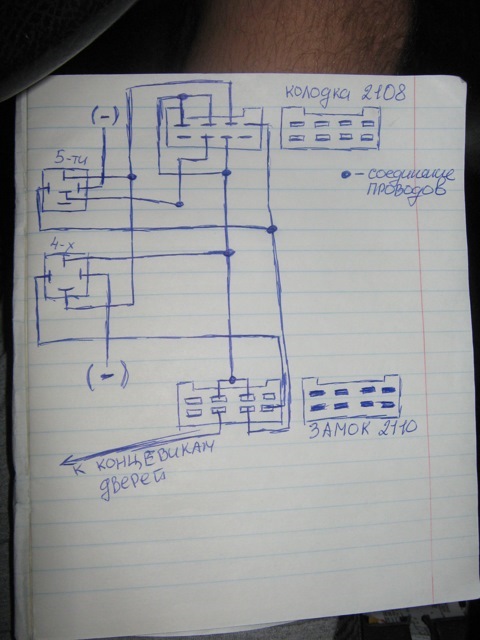 КОЛОДКА 2108
(-)
5-ти
- СОЕДИНЕНИЕ
ПРОВОДОВ
4-х
(-)
ЗАМОК 2110
К КОНЦЕВИКАМ
ДВЕРЕЙ